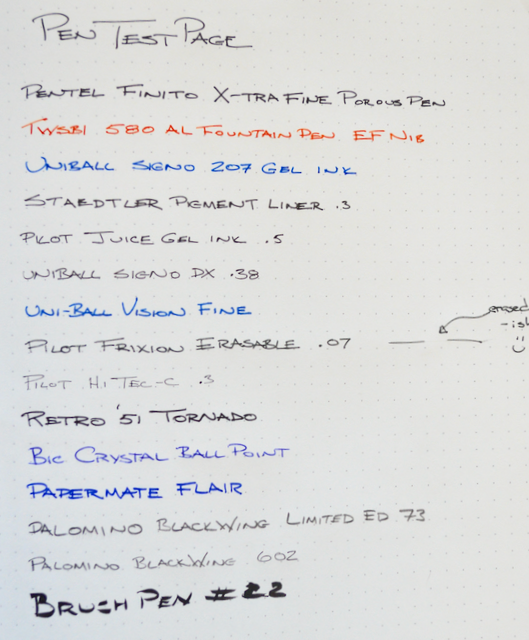 PEN TEST PAGE
PENTEL FINITO X-TRA FINE POROUS PEN
TWSBI 580 AL FOUNTAIN PEN EF NIB
UNIBALL SIGNO 207 GEL INK
STAEDTLER PIGMENT LINER .3
PILOT JUICE GEL INK .5
UNIBALL SIGNO DX .38
UNI-BALL VISION FINE
PILOT FRIXION ERASABLE .07
-ish
PILOT HI-TEC-C .3
RETRO '51 TORNADO
BIC CRYSTAL BALL POINT
PAPERMATE FLAIR
PALOMINO BLACKWING LIMITED ED 73
PALOMINO BLACKWING 602
BRUSH PEN #22